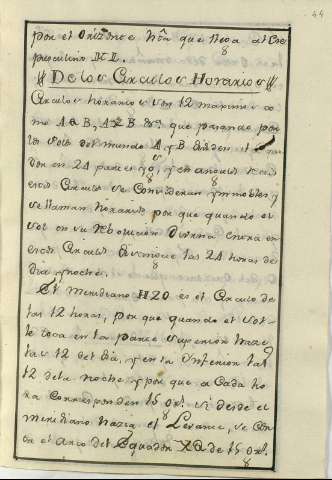 44
por el Orizonte hta que llega al Cre
pusculino KL.
De los Circulos Horarios
Circulos horarios son 12 maximos co
mo AQB, AXB &a. que pasando por
los Polos del mundo A, y B dividen el
dor en 24 partes ygs. y en
estos Circulos se Consideran ymmobles, y
se llaman horarios por que quando el
sol en su Rebolucion Diurna entra en
estos Circulos distingue las 24 horas de
dia, y noche.
El Meridiano HZO es el Circulo de
las 12 horas, por que quando el sol
le toca en la parte superior haze
las 12 del dia, y en la Inferior las
12 dela noche, y por que a Cada ho
ra Corresponden 15 grs. si desde el
meridiano hazia el Levante, se Con
ta el arco del Equador XQ de 15 grs.